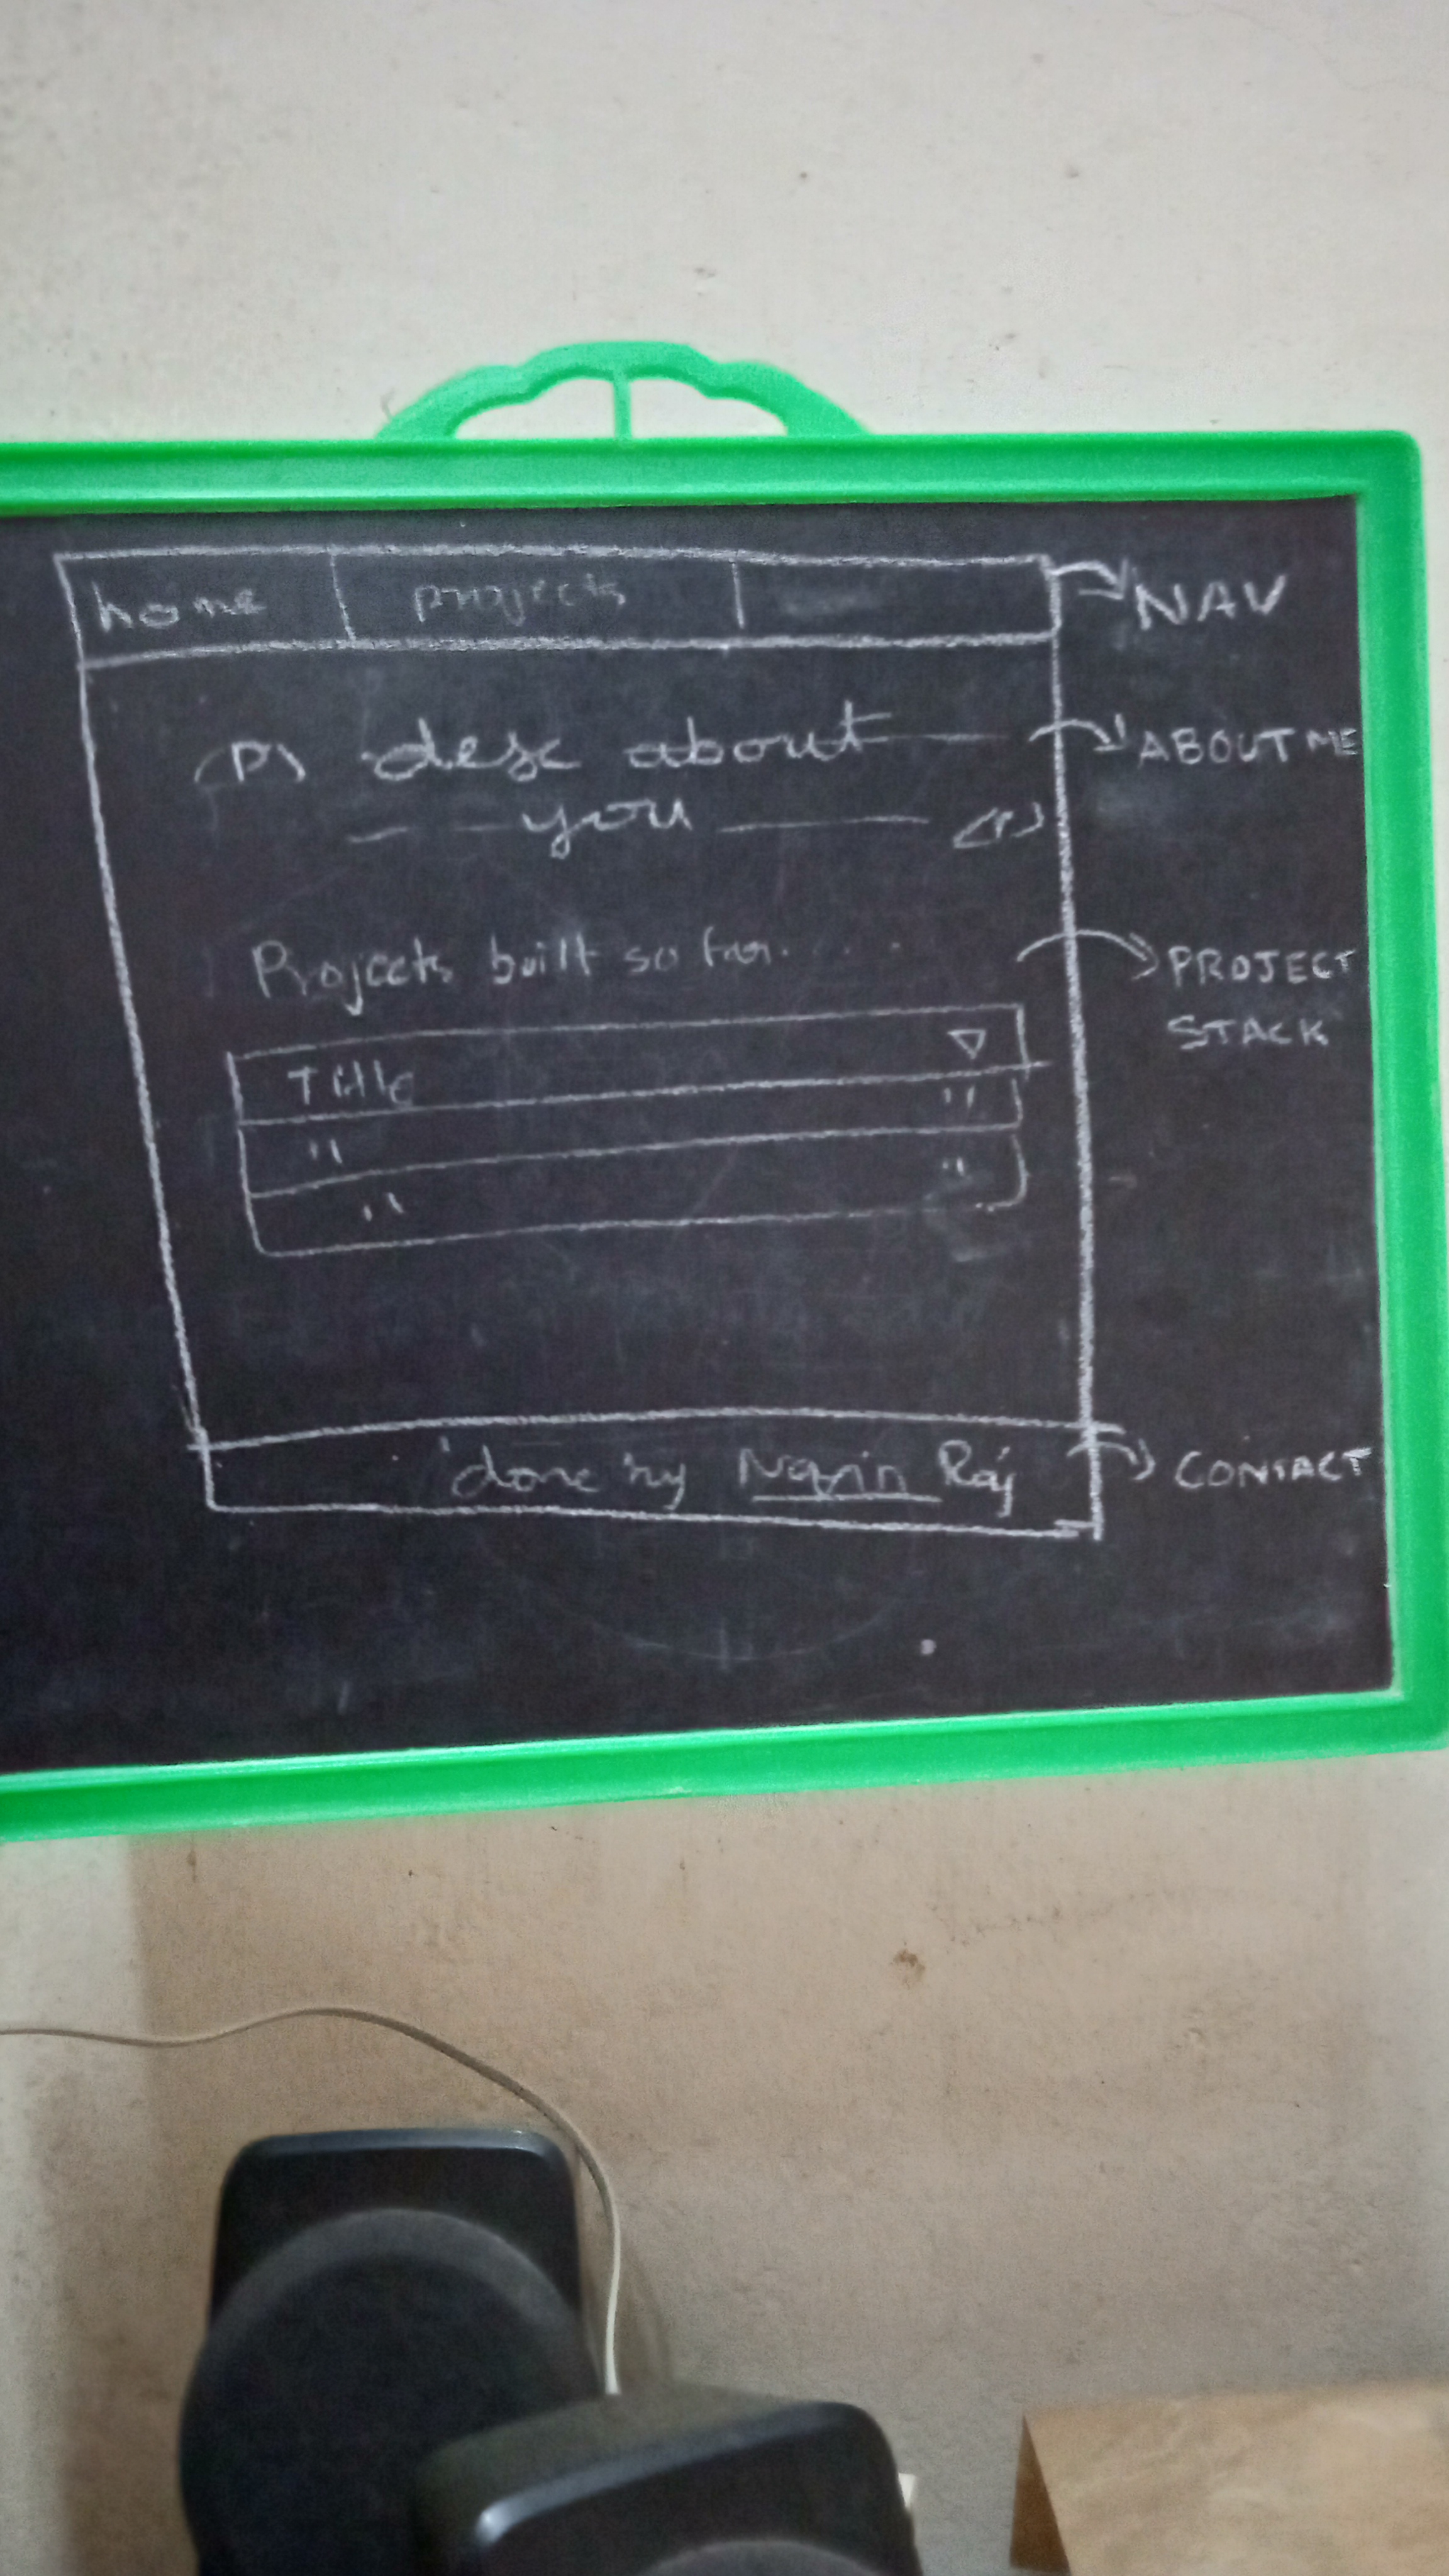 home projects
NAV
<P> desc about
ABOUT ME
you </P>
Projects built so far.....
PROJECT
STACK
Title ▽
" "
" "
done by Navin Raj
CONTACT